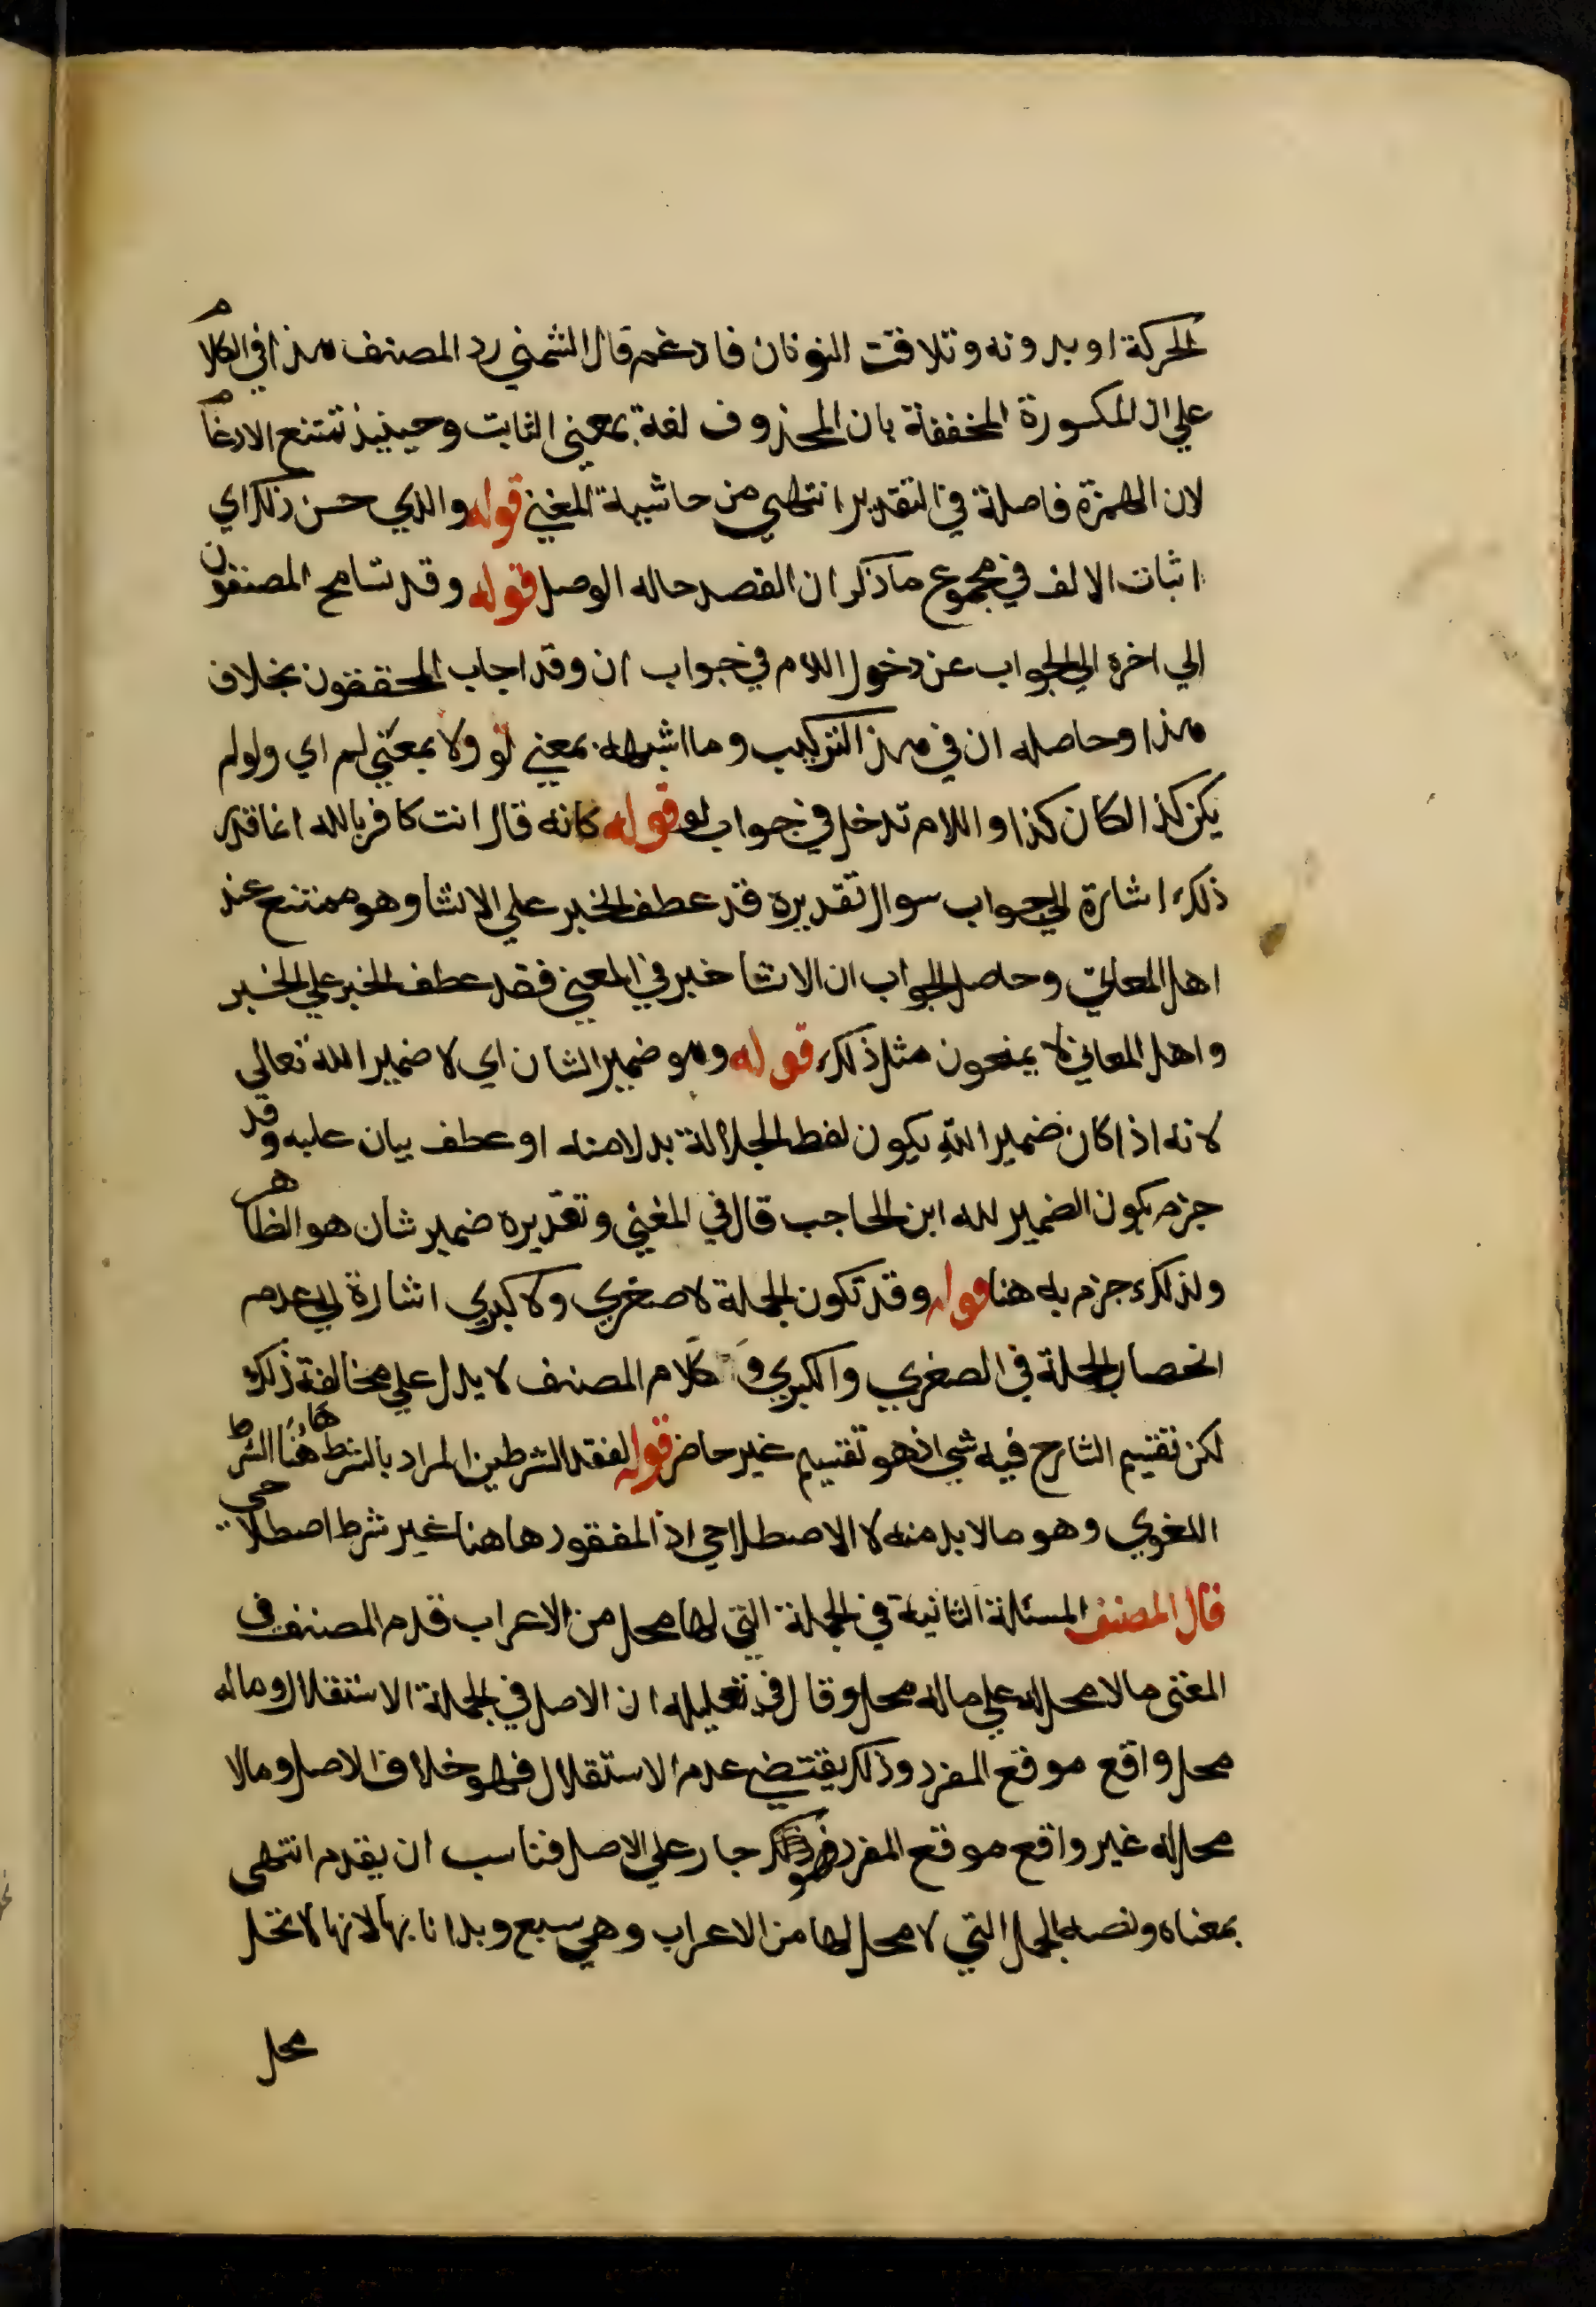 الحركة او بدونه وتلاقت النونان فادغم قال الشمني رد المصنف هذا في الكلام
علي ان المكسورة المخففة بان المحذوف لغة بمعني الثابت وحينيذ تمتنع الادغام
لان الهمزة فاصلة في التقدير انتهي من حاشية المغني قوله والذي حسن ذلك اي
اثبات الالف في مجموع ما ذكر ان القصد حاله الوصل قوله وقد تسامح المصنفون
الي اخره الي الجواب عن دخول اللام في جواب ان وقد اجاب المحققون بخلاف
هذا وحاصله ان في هذ التركيب وما اشبهه بمعني لو ولا بمعني لم اي ولولم
يكن كذا لكان كذا واللام تدخل في جواب لو قوله كانه قال انت كافر بالله انما قدر
ذلك اشارة الي جواب سوال تقديره قد عطف الخبر علي الانشا وهو ممتنع عند
اهل المعاني وحاصل الجواب ان الانشا خبر في المعني فقد عطف الخبر علي الخبر
واهل المعاني لا يمنعون مثل ذلك قوله وهو ضمير الشان اي لا ضمير الله تعالي
لانه اذا كان ضمير الله يكون لفظ الجلالة بدلا منه او عطف بيان عليه وقد
جزم بكون الضمير لله ابن الحاجب قال في المغني وتقديره ضمير شان هو الظاهر
ولذلك جزم به هنا قوله وقد تكون الجملة لا صغري ولا كبري اشارة الي عدم
انحصار الجملة في الصغري والكبري و كلام المصنف لا يدل علي مخالفة ذلك
لكن تقسيم الشارح فيه شي اذ هو تقسيم غير حاضر قوله لفقد الشرطين المراد بالشرط هاهنا الشرط
اللغوي وهو ما لا بد منه لا الاصطلاحي اذ المفقود هاهنا غير شرط اصطلاحي
قال المصنف المسئلة الثانية في الجملة التي لها محل من الاعراب قدم المصنف في
المغني ما لا محل له علي ما له محل وقال في تعليله ان الاصل في الجملة الاستقلال وما له
محل واقع موقع المفرد وذلك يقتضي عدم الاستقلال فهو خلاف الاصل وما لا
محل له غير واقع موقع المفرد فهو جار علي الاصل فناسب ان يقدم انتهي
بمعناه ونصه الجمل التي لا محل لها من الاعراب وهي سبع وبدانا بها لانها لا تحل
محل